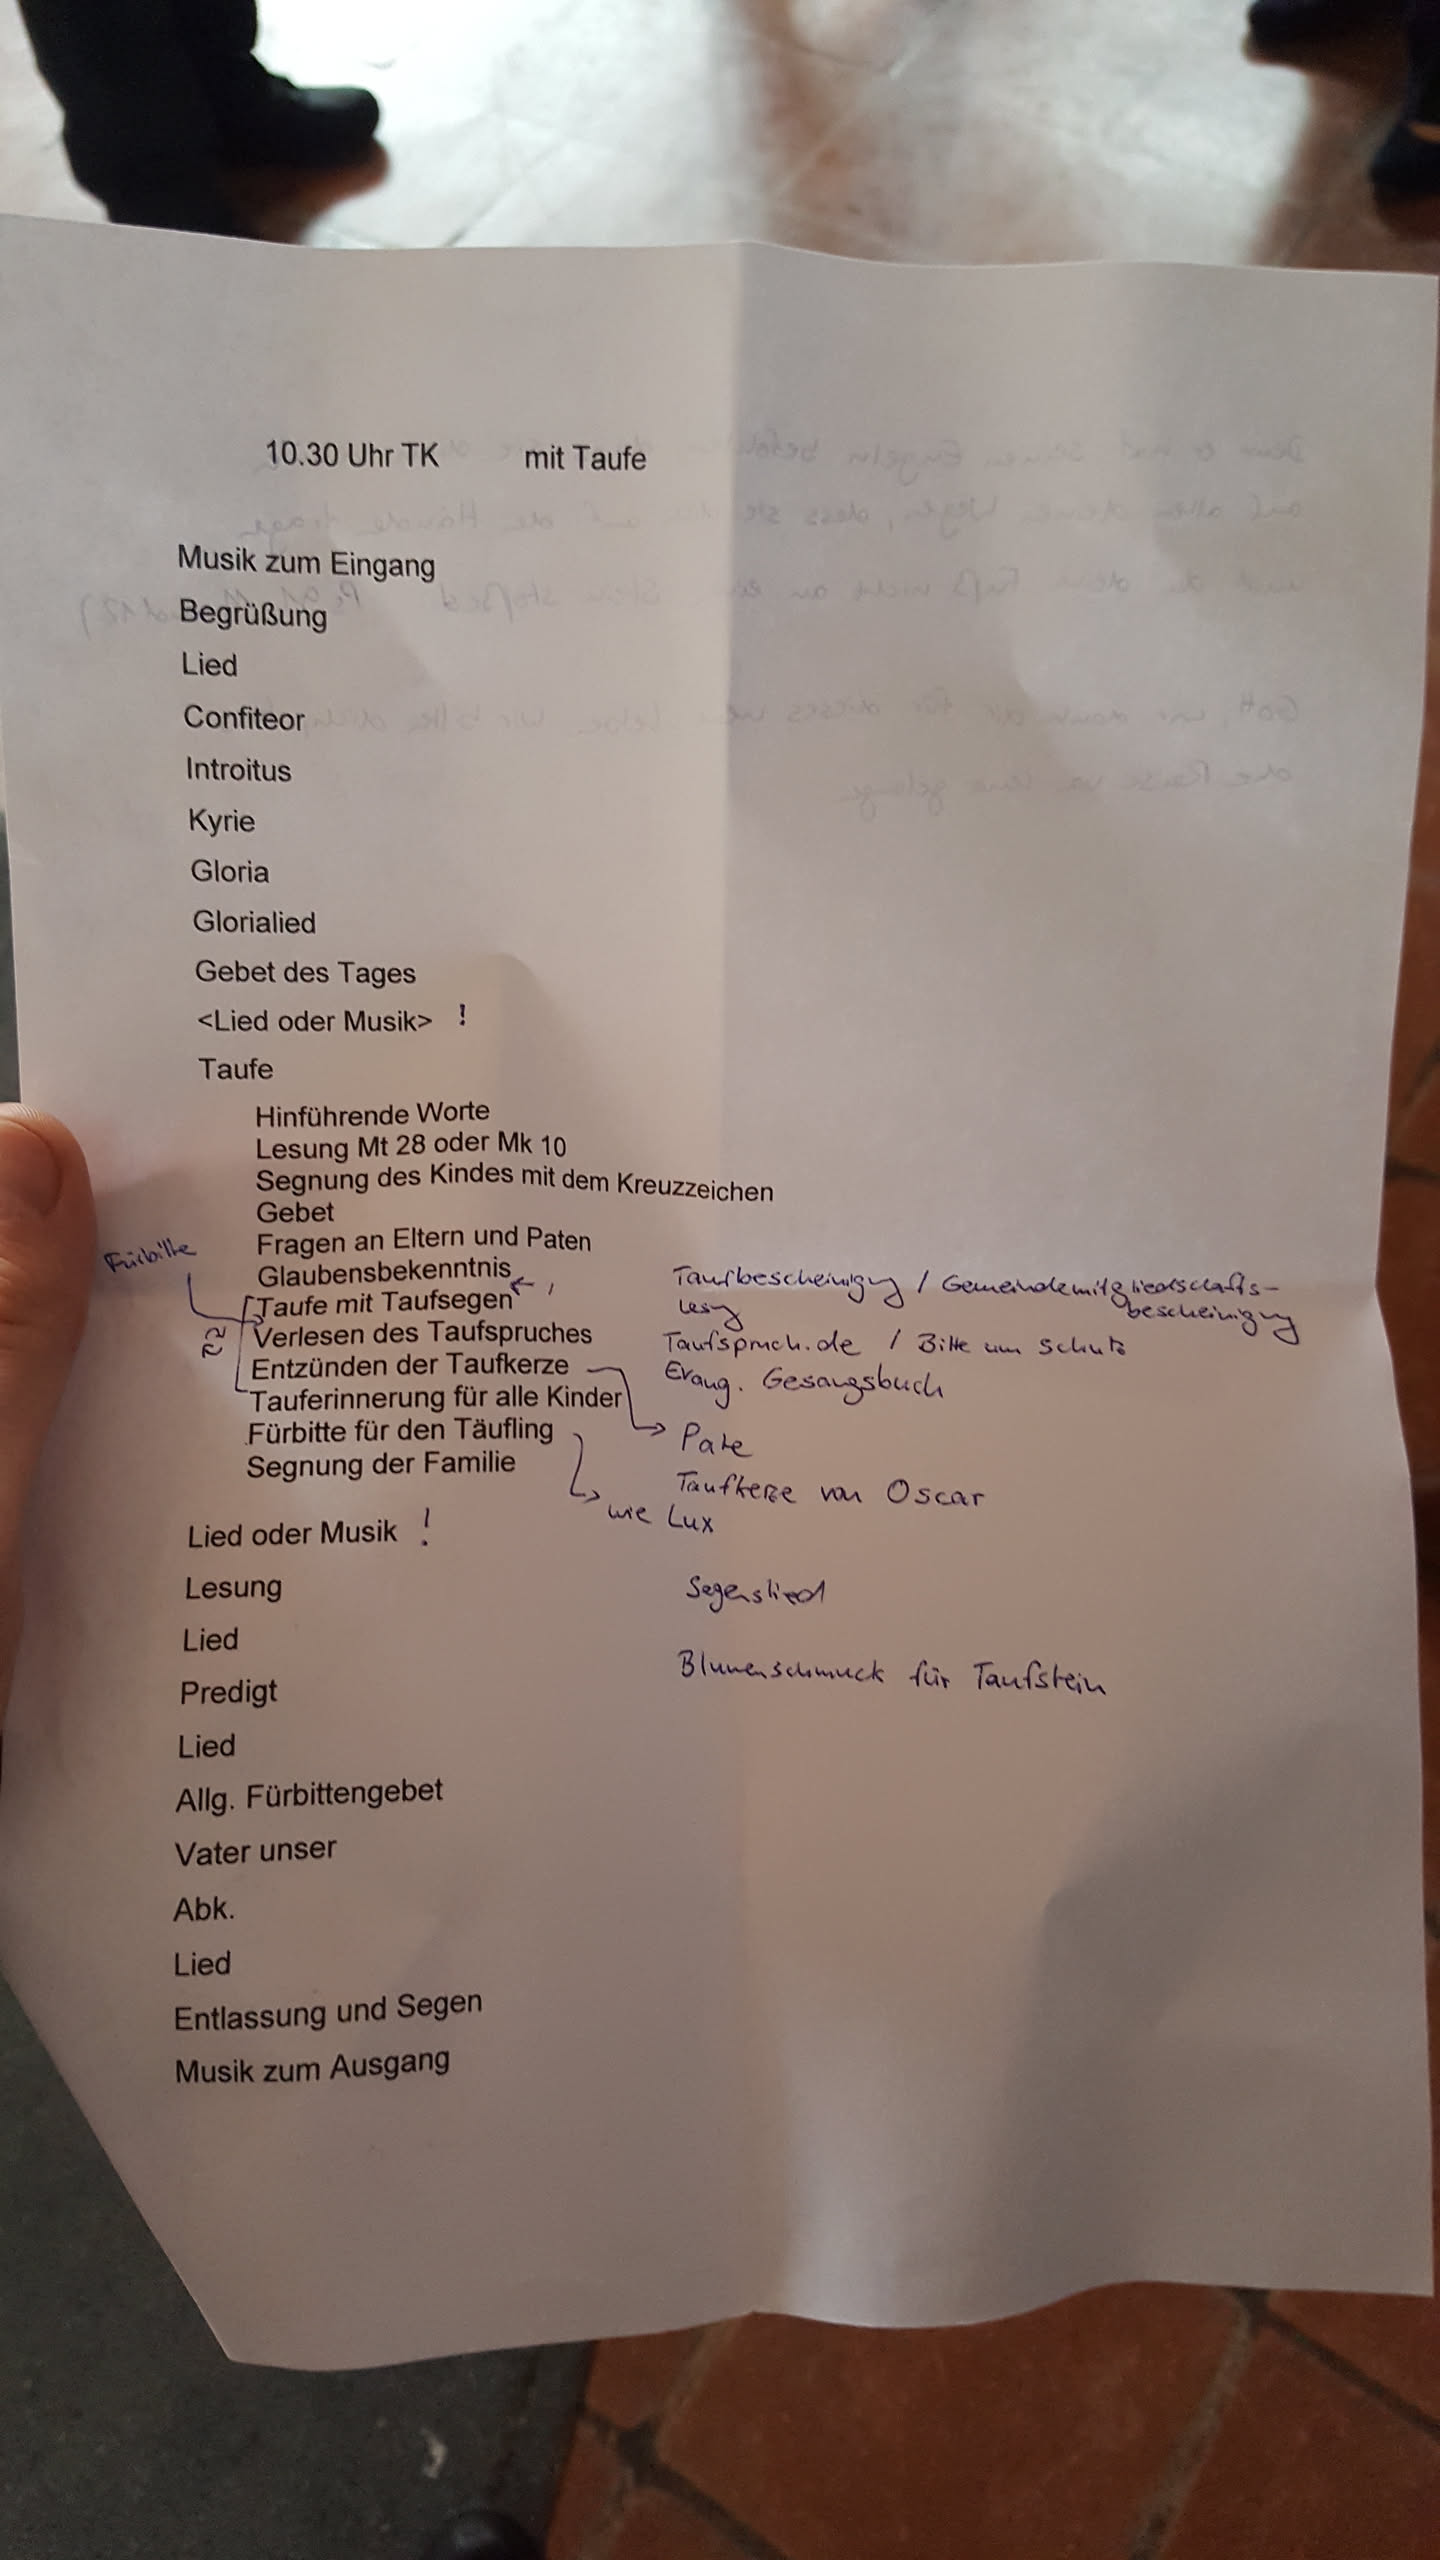 10.30 Uhr TK mit Taufe
Musik zum Eingang
Begrüßung
Lied
Confiteor
Introitus
Kyrie
Gloria
Glorialied
Gebet des Tages
<Lied oder Musik> !
Taufe
Hinführende Worte
Lesung Mt 28 oder Mk 10
Segnung des Kindes mit dem Kreuzzeichen
Gebet
Fragen an Eltern und Paten
Fürbitte
Glaubensbekenntnis
Taufe mit Taufsegen
Verlesen des Taufspruches
Entzünden der Taufkerze
Tauferinnerung für alle Kinder
Fürbitte für den Täufling
Segnung der Familie
Taufbescheinigung / Gemeindemitgliedschafts-
bescheinigung
Taufspruch.de / Bitte um Schutz
Evang. Gesangsbuch
Pate
Taufkerze von Oscar
wie Lux
Lied oder Musik !
Lesung
Segenslied
Lied
Blumenschmuck für Taufstein
Predigt
Lied
Allg. Fürbittengebet
Vater unser
Abk.
Lied
Entlassung und Segen
Musik zum Ausgang